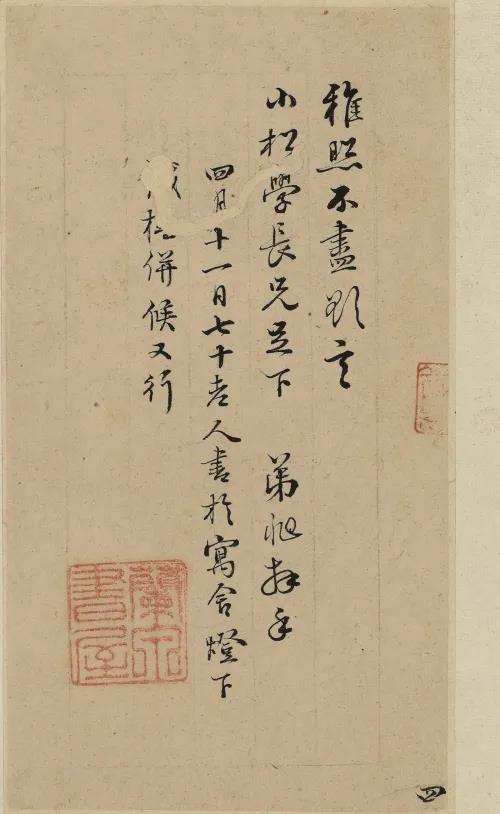 雅照不盡欲言
小松學長兄足下 弟昶拜手
四月十一日七十老人書於寓舍燈下
併候又行
蘭泉書屋
四